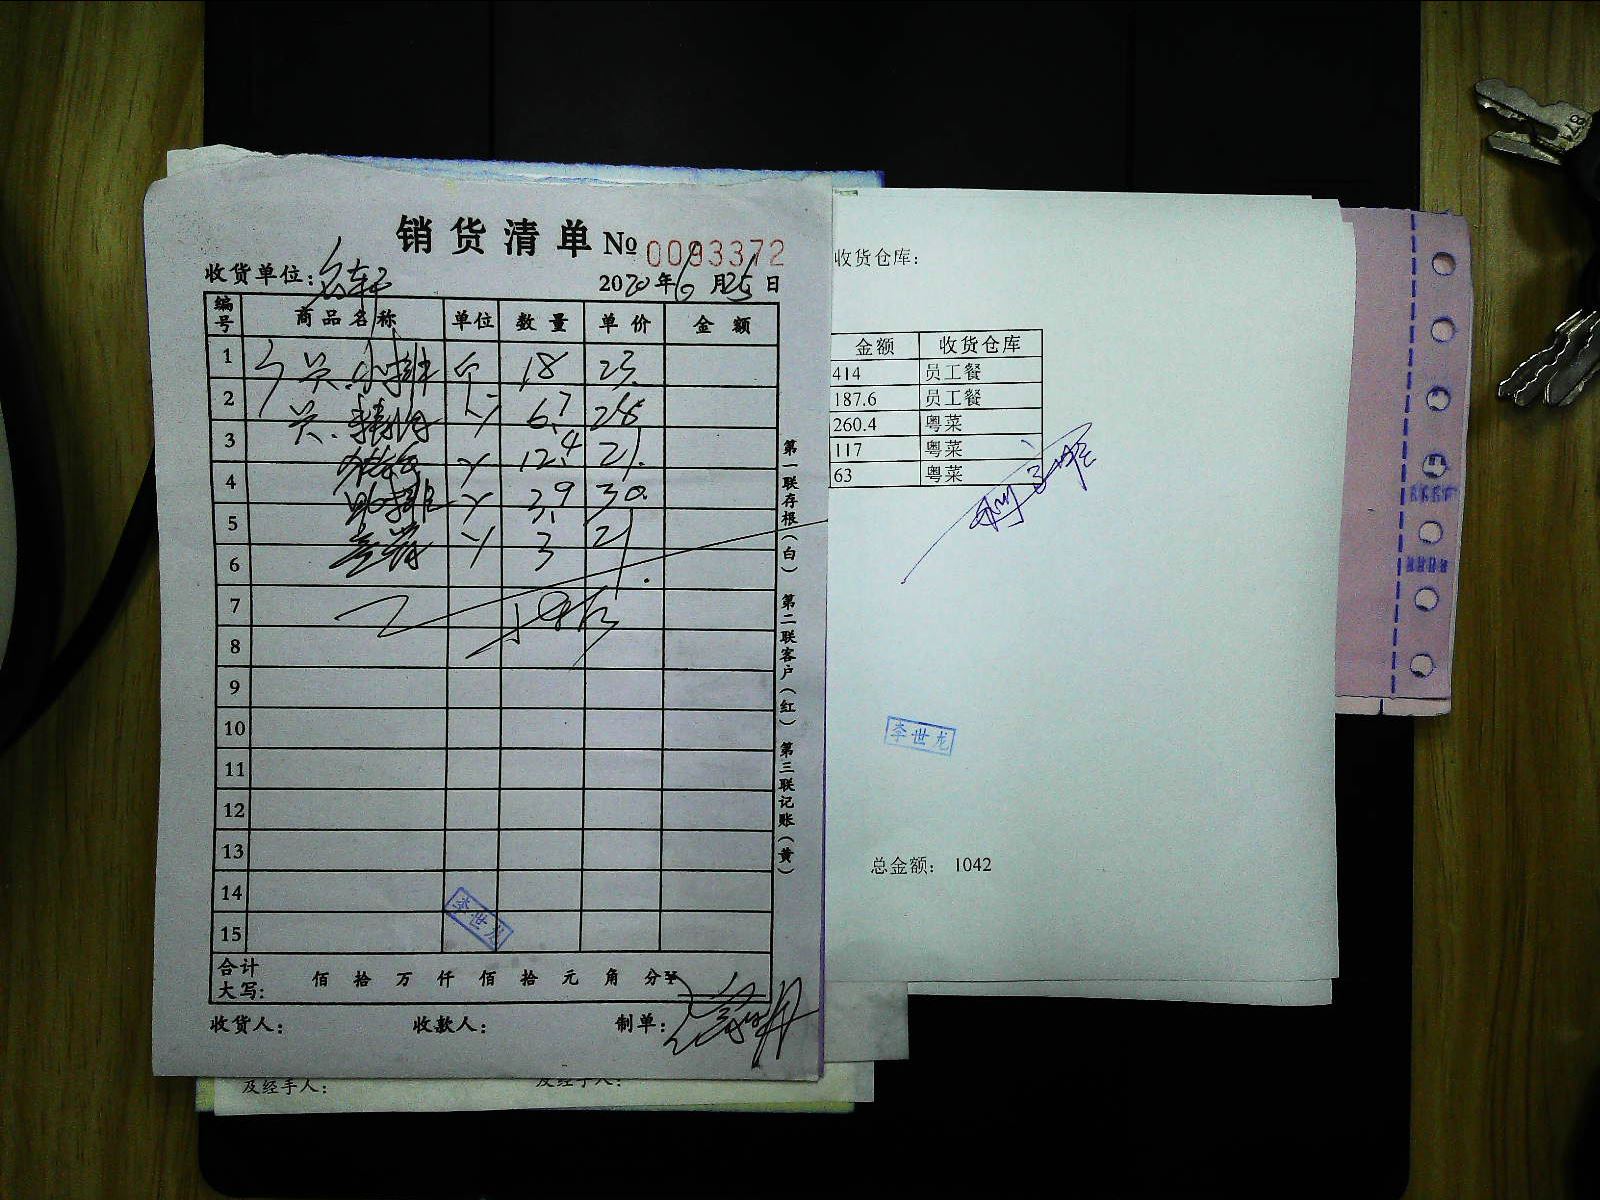 销货清单 № 0093372
收货单位:
2020年6月25日
编号 商品名称 单位 数量 单价 金额
1 小排 个 18 23.
2 6.7 28
3 12.4 21.
4 3.9 30.
5 3 21.
6
7
8
9
10
11
12
13
14
15
李世龙
合计
大写: 佰 拾 万 仟 佰 拾 元 角 分¥
收货人: 收款人: 制单:
第一联存根(白) 第二联客户(红) 第三联记账(黄)
及经手人: 及经手人:
收货仓库:
金额 收货仓库
414 员工餐
187.6 员工餐
260.4 粤菜
117 粤菜
63 粤菜
李世龙
总金额: 1042